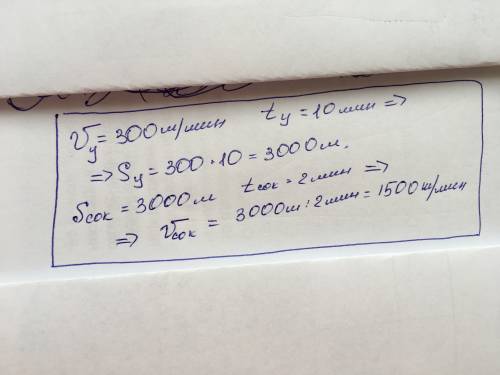 Vу = 300 м/мин tу = 10 мин =>
=> Sу = 300 · 10 = 3000 м.
Sсок = 3000 м tсок = 2 мин =>
=> Vсок = 3000 м : 2 мин = 1500 м/мин